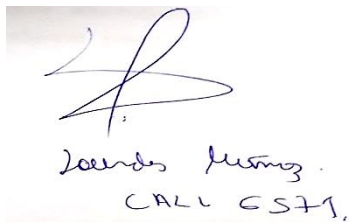 Lourdes Muñoz.
CALL 6571.